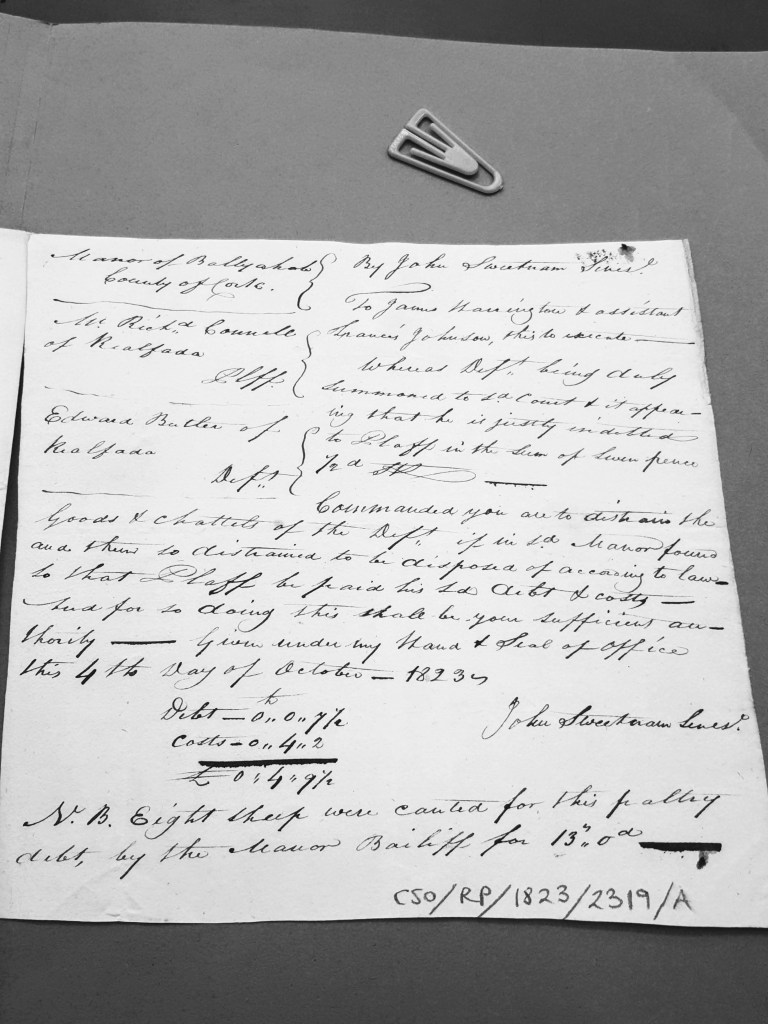 Manor of Ballyahob
County of Cork.
By John Sweetnam Senesl.
To James Harrington & assistant
Francis Johnson, this to execute —
Mr. Richd. Connell
of Kealfada
Plff.
Whereas Deft. being duly
summoned to sd Court & it appear-
ing that he is justly indebted
to Plaff in the sum of Seven pence
1/2d
Edward Butler of
Kealfada
Deft.
Commanded you are to distrain the
Goods & Chattels of the Deft. if in sd. Manor found
and them so distrained to be disposed of according to law —
so that Plaff be paid his sd debt & costs —
And for so doing this shall be your sufficient au-
thority — Given under my Hand & Seal of Office
this 4 th Day of October — 1823
Debt — 0 ,, 0 ,, 7 1/2
John Sweetnam Senesl.
Costs — 0 ,, 4 ,, 2
£ 0 ,, 4 ,, 9 1/2
N. B. Eight sheep were canted for this paltry
debt, by the Manor Bailiff for 13s ,, 0d
CSO/RP/1823/2319/A